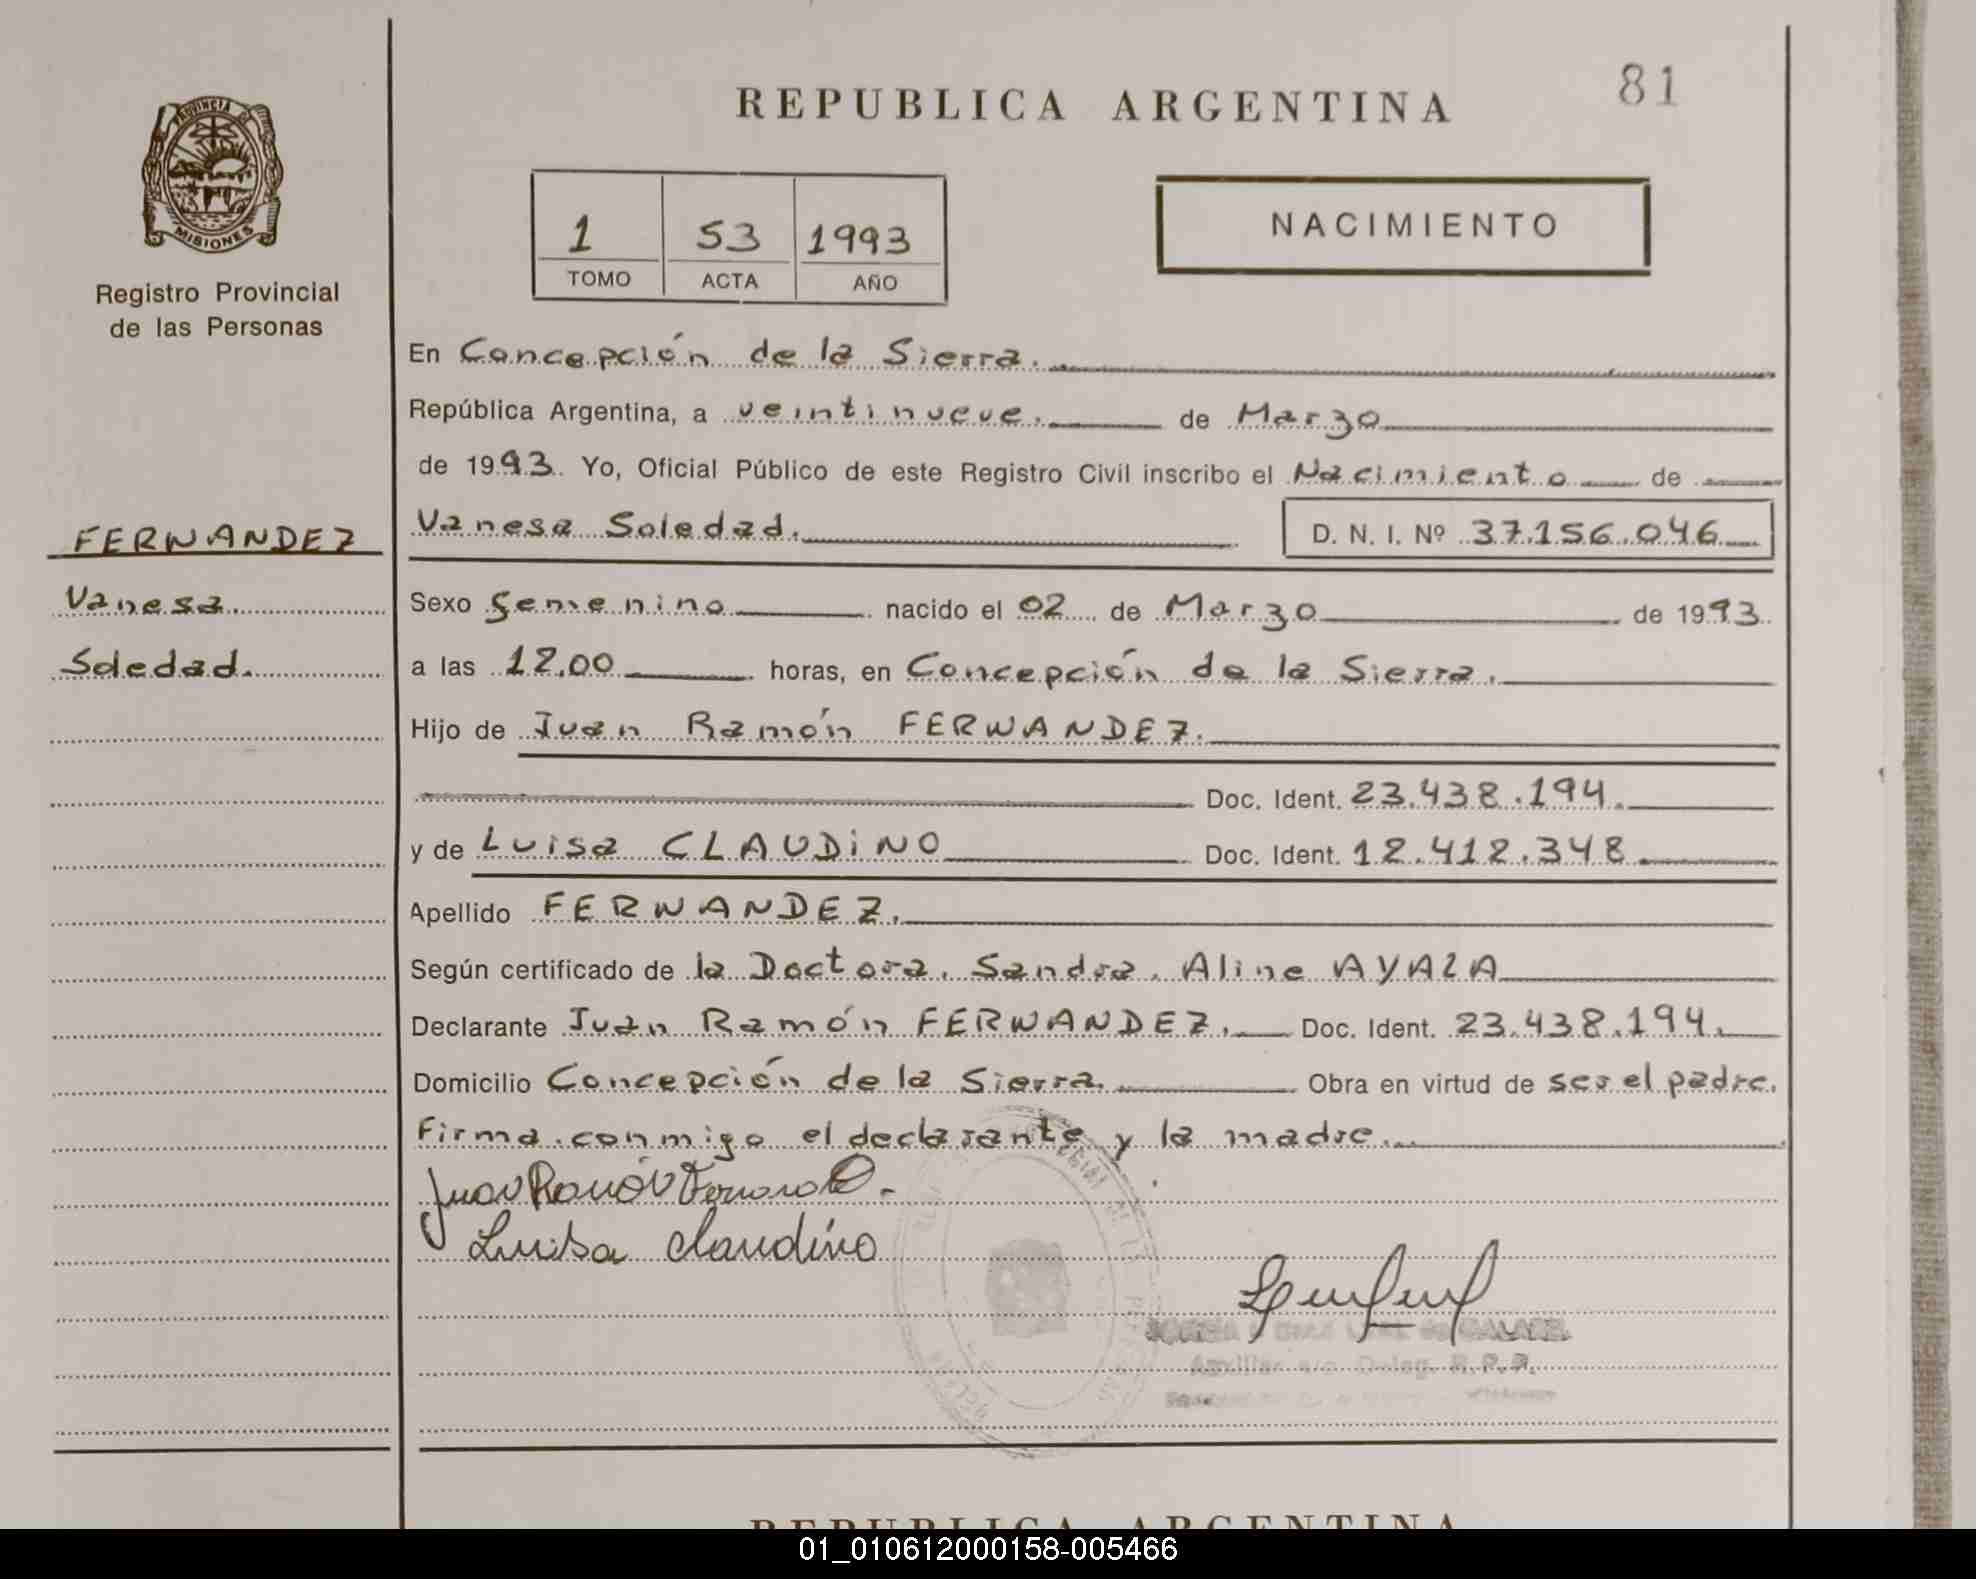 REPUBLICA ARGENTINA
81
PROVINCIA DE
MISIONES
Registro Provincial
de las Personas
1 53 1993
TOMO ACTA AÑO
NACIMIENTO
En Concepción de la Sierra.
República Argentina, a veintinueve. de Marzo
de 1993. Yo, Oficial Público de este Registro Civil inscribo el Nacimiento de
FERNANDEZ
Vanesa Soledad. D. N. I. Nº 37.156.046
Vanesa
Soledad.
Sexo femenino nacido el 02 de Marzo de 1993.
a las 12.00 horas, en Concepción de la Sierra.
Hijo de Juan Ramón FERNANDEZ.
Doc. Ident. 23.438.194.
y de Luisa CLAUDINO Doc. Ident. 12.412.348
Apellido FERNANDEZ.
Según certificado de la Doctora. Sandra. Aline AYALA
Declarante Juan Ramón FERNANDEZ. Doc. Ident. 23.438.194.
Domicilio Concepción de la Sierra. Obra en virtud de ser el padre.
Firma conmigo el declarante y la madre.
Juan Ramón Fernandez.
Luisa Claudino
Auxiliar a/c. Deleg. R.P.P.
REPUBLICA ARGENTINA
01_010612000158-005466